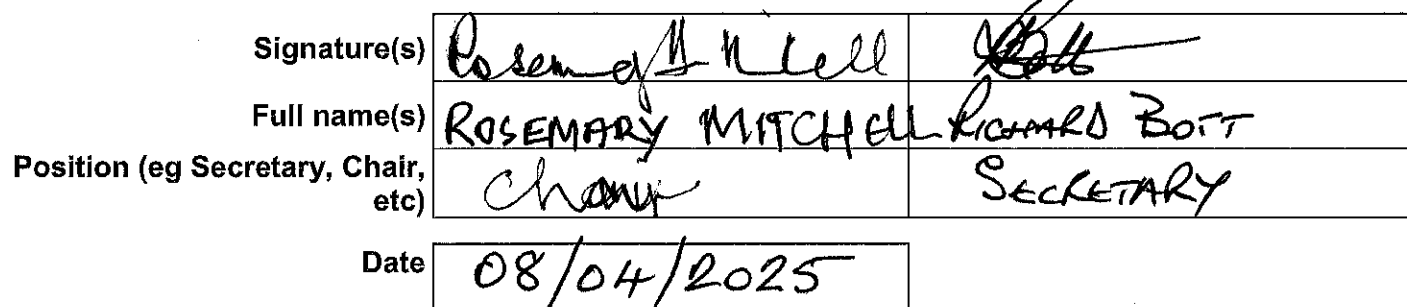 Signature(s)
Full name(s) ROSEMARY MITCHELL RICHARD BOTT
Position (eg Secretary, Chair,
etc) Chair SECRETARY
Date 08/04/2025